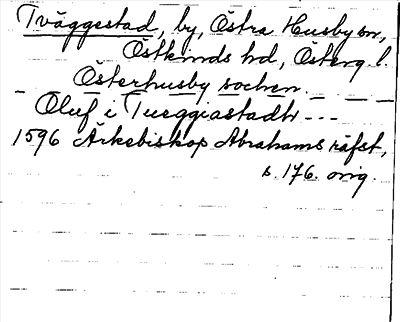 Tväggestad, by, Östra Husby sn,
Östkinds hd, Österg. l.
Österhusby socken.
Oluf i Tueggiastadh ---
1596 Ärkebiskop Abrahams räfst,
s. 176. orig.